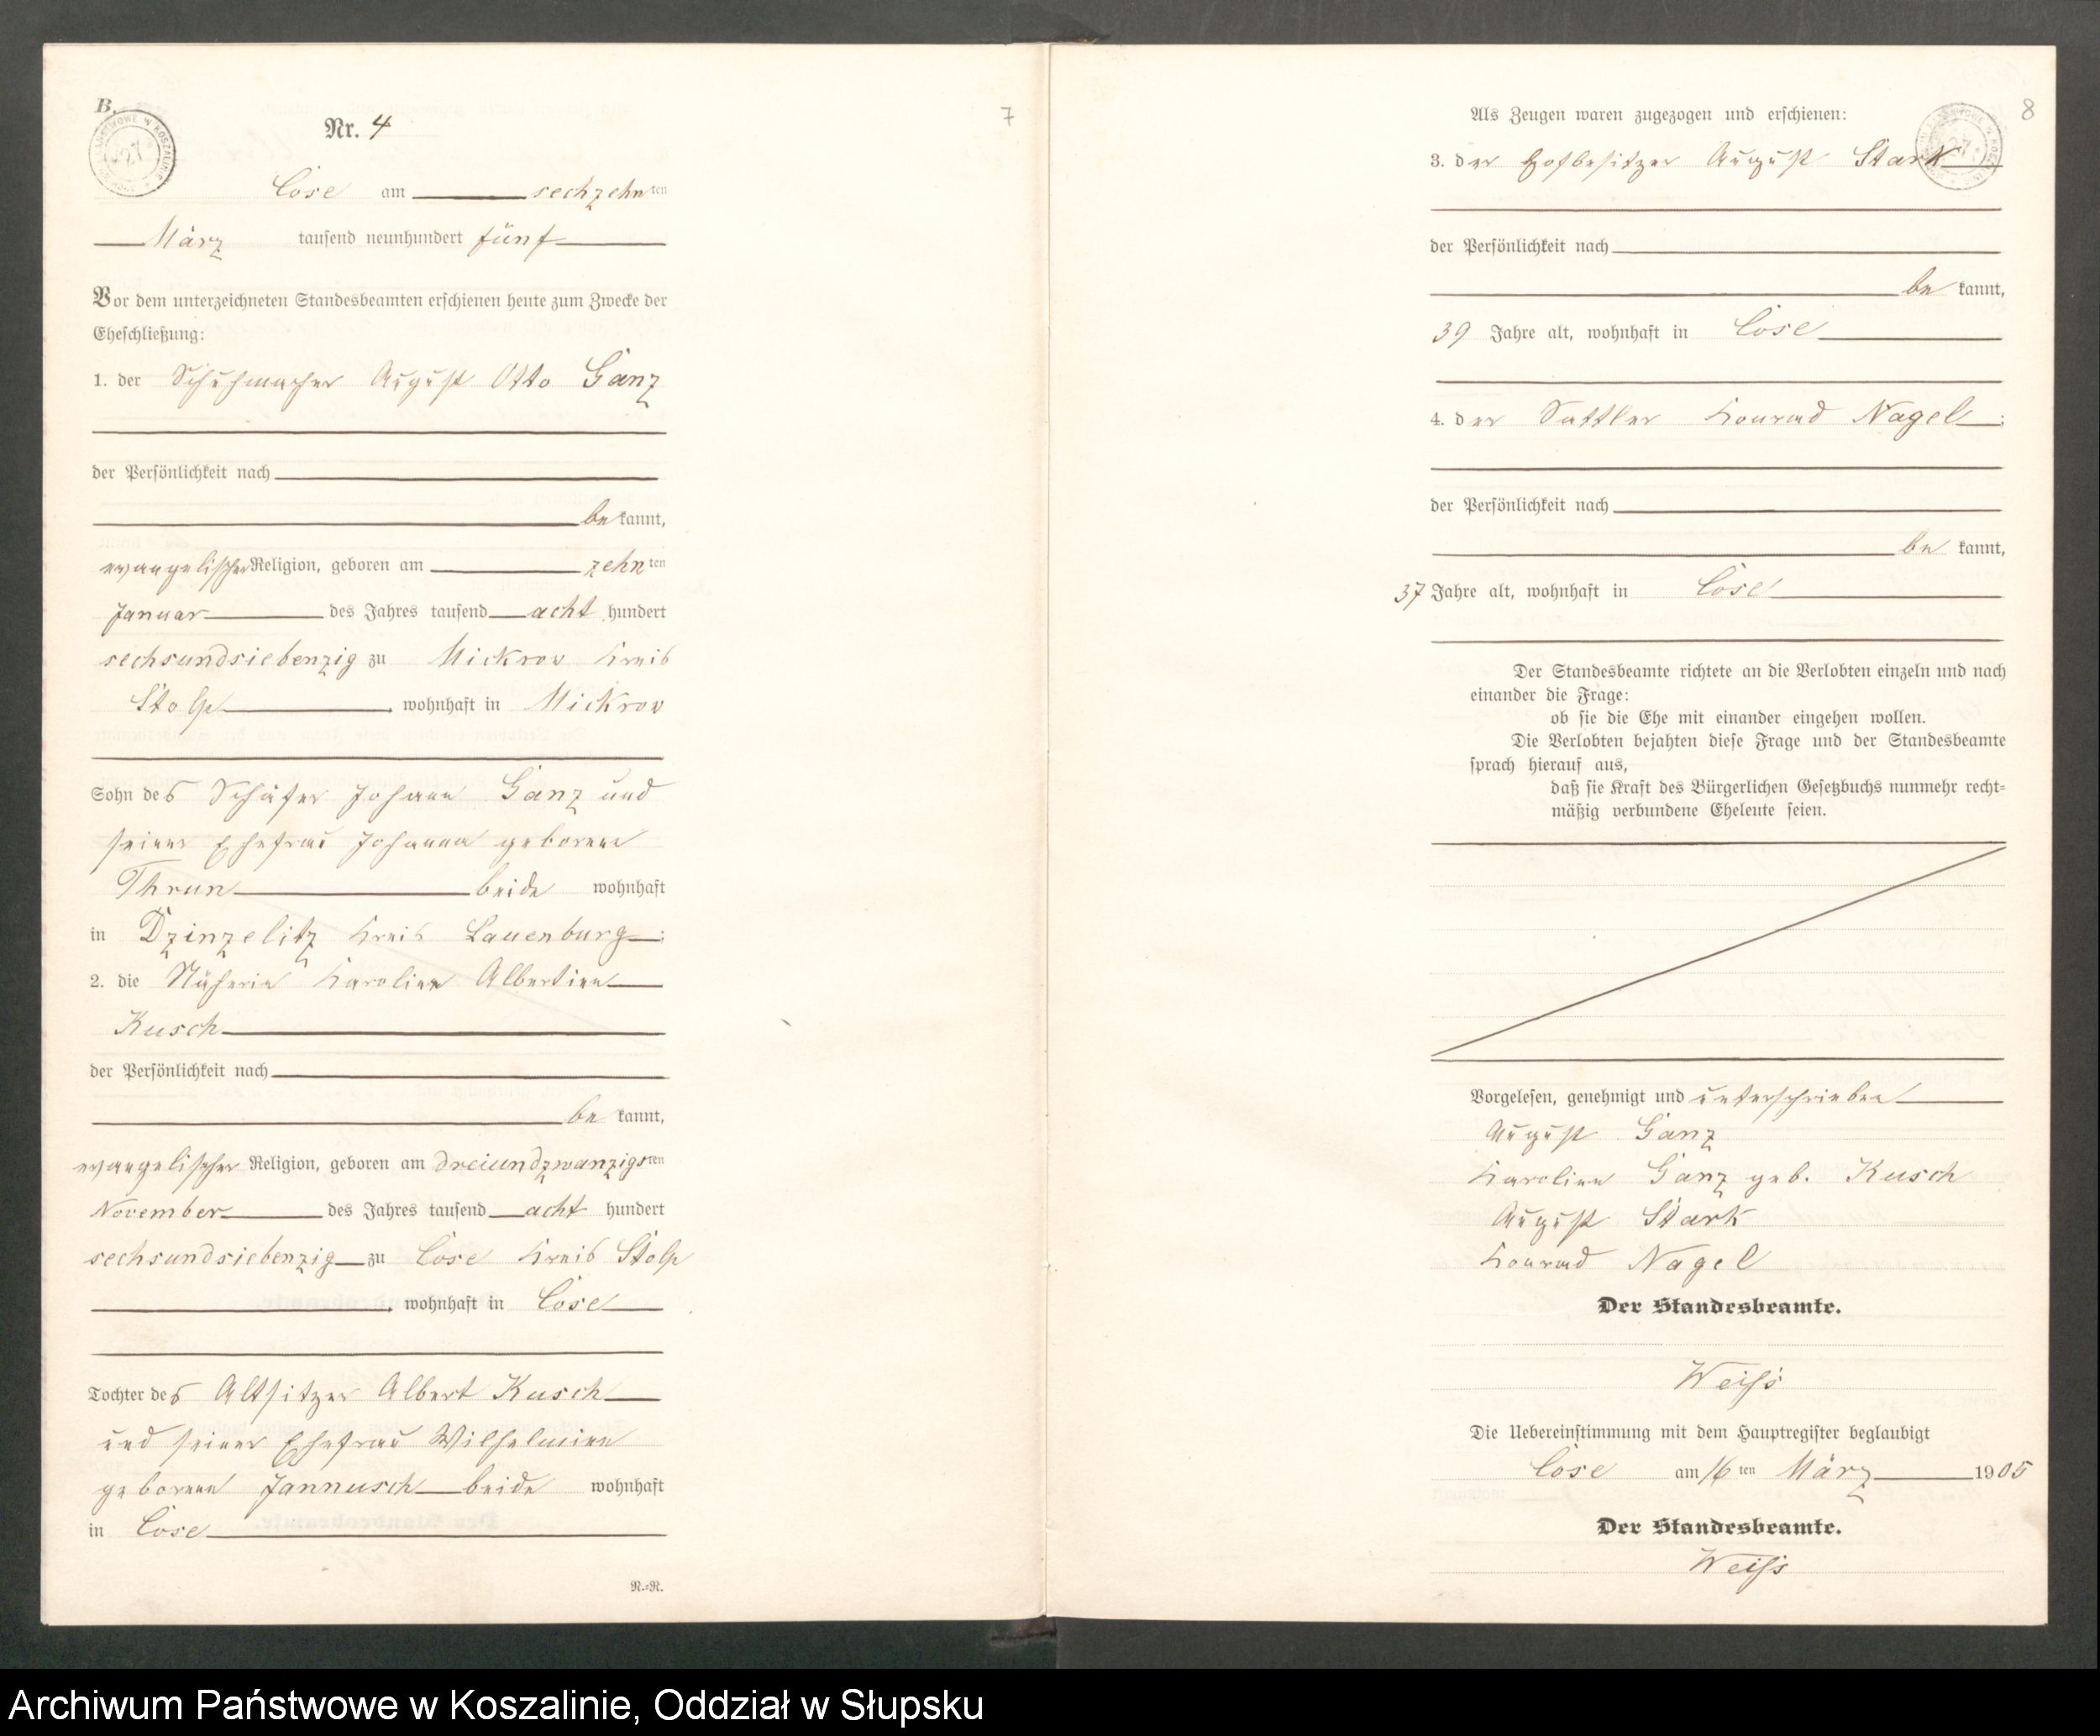 B.
Nr. 4
7
Cose am sechzehnten
März tausend neunhundert fünf
Vor dem unterzeichneten Standesbeamten erschienen heute zum Zwecke der
Eheschließung:
1. der Schuhmacher August Otto Ganz
der Persönlichkeit nach
bekannt,
evangelischer Religion, geboren am zehnten
Januar des Jahres tausend acht hundert
sechsundsiebenzig zu Mickrow Kreis
Stolp, wohnhaft in Mickrow
Sohn des Schäfer Johann Ganz und
seiner Ehefrau Johanna geborene
Thrun beide wohnhaft
in Dzinzelitz Kreis Lauenburg;
2. die Näherin Karoline Albertine
Kusch
der Persönlichkeit nach
be kannt,
evangelischer Religion, geboren am dreiundzwanzigsten
November des Jahres tausend acht hundert
sechsundsiebenzig zu Cose Kreis Stolp
, wohnhaft in Cose
Tochter des Altsitzer Albert Kusch
und seiner Ehefrau Wilhelmine
geborene Jannusch beide wohnhaft
in Cose
N.=R.
8
Als Zeugen waren zugezogen und erschienen:
3. der Hofbesitzer August Stark
der Persönlichkeit nach
be kannt,
39 Jahre alt, wohnhaft in Cose
4. der Sattler Konrad Nagel;
der Persönlichkeit nach
be kannt,
37 Jahre alt, wohnhaft in Cose
Der Standesbeamte richtete an die Verlobten einzeln und nach
einander die Frage:
ob sie die Ehe mit einander eingehen wollen.
Die Verlobten bejahten diese Frage und der Standesbeamte
sprach hierauf aus,
daß sie Kraft des Bürgerlichen Gesetzbuchs nunmehr recht=
mäßig verbundene Eheleute seien.
Vorgelesen, genehmigt und unterschrieben
August Ganz
Karoline Ganz geb. Kusch
August Stark
Konrad Nagel
Der Standesbeamte.
Weiss
Die Uebereinstimmung mit dem Hauptregister beglaubigt
Cose am 16ten März 1905
Der Standesbeamte.
Weiss
Archiwum Państwowe w Koszalinie, Oddział w Słupsku